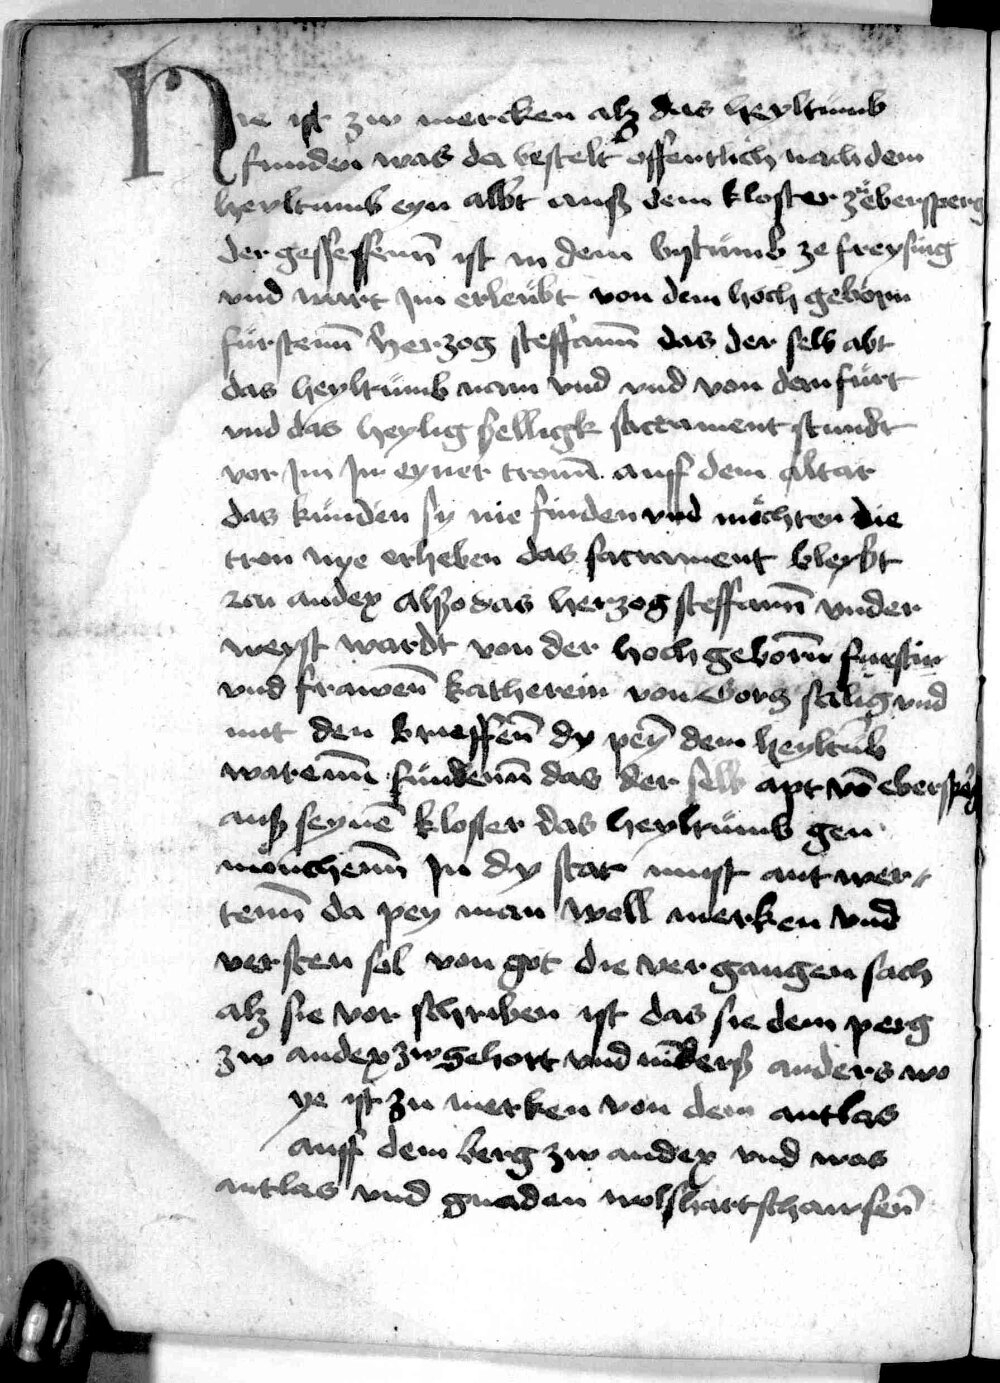 Hie ist zw mercken alß das heyltumb
funden was da bestelt offentlich nach dem
heyltumb eyn abbt auß dem kloster zë ebersperg
der gesessenn̄ ist in dem bystümb ze freysing
vnd wart Im erleübt von dem hoch geborn
fürstenn̄ herzog steffann̄ das der selb abt
das heyltümb nam vnd vnd von dem fürt
vnd das heylig selligk sacrament stundt
vor Im In eyner tronn̄ auff dem altar
das kunden sy nie finden vnd möchten die
tron nye erheben das sacrament bleybt
zu andex alßo das herzog steffann̄ vnder
weyst wardt von der hoch geborn̄ furstin
vnd frawen̄ katherein von Gorz sälig vnd
mit den brieffen̄ dy pey̅ dem heyltūb
warenn̄ fundenn̄ das der selb apt vō ebersperg
auß seynē kloster das heyltumb gen
mönchenn̄ In dy stat must ant wert
tenn̄ da pey man woll merken vnd
versten sol von got die vergangen sach
alß sie vor schriben ist das sie dem perg
zw andex zw gehort vnd nīderß anders wo
ye ist zu merken von dem antlas
auff dem berg zw andex vnd was
antlas vnd gnaden wolfhartschawsen̄